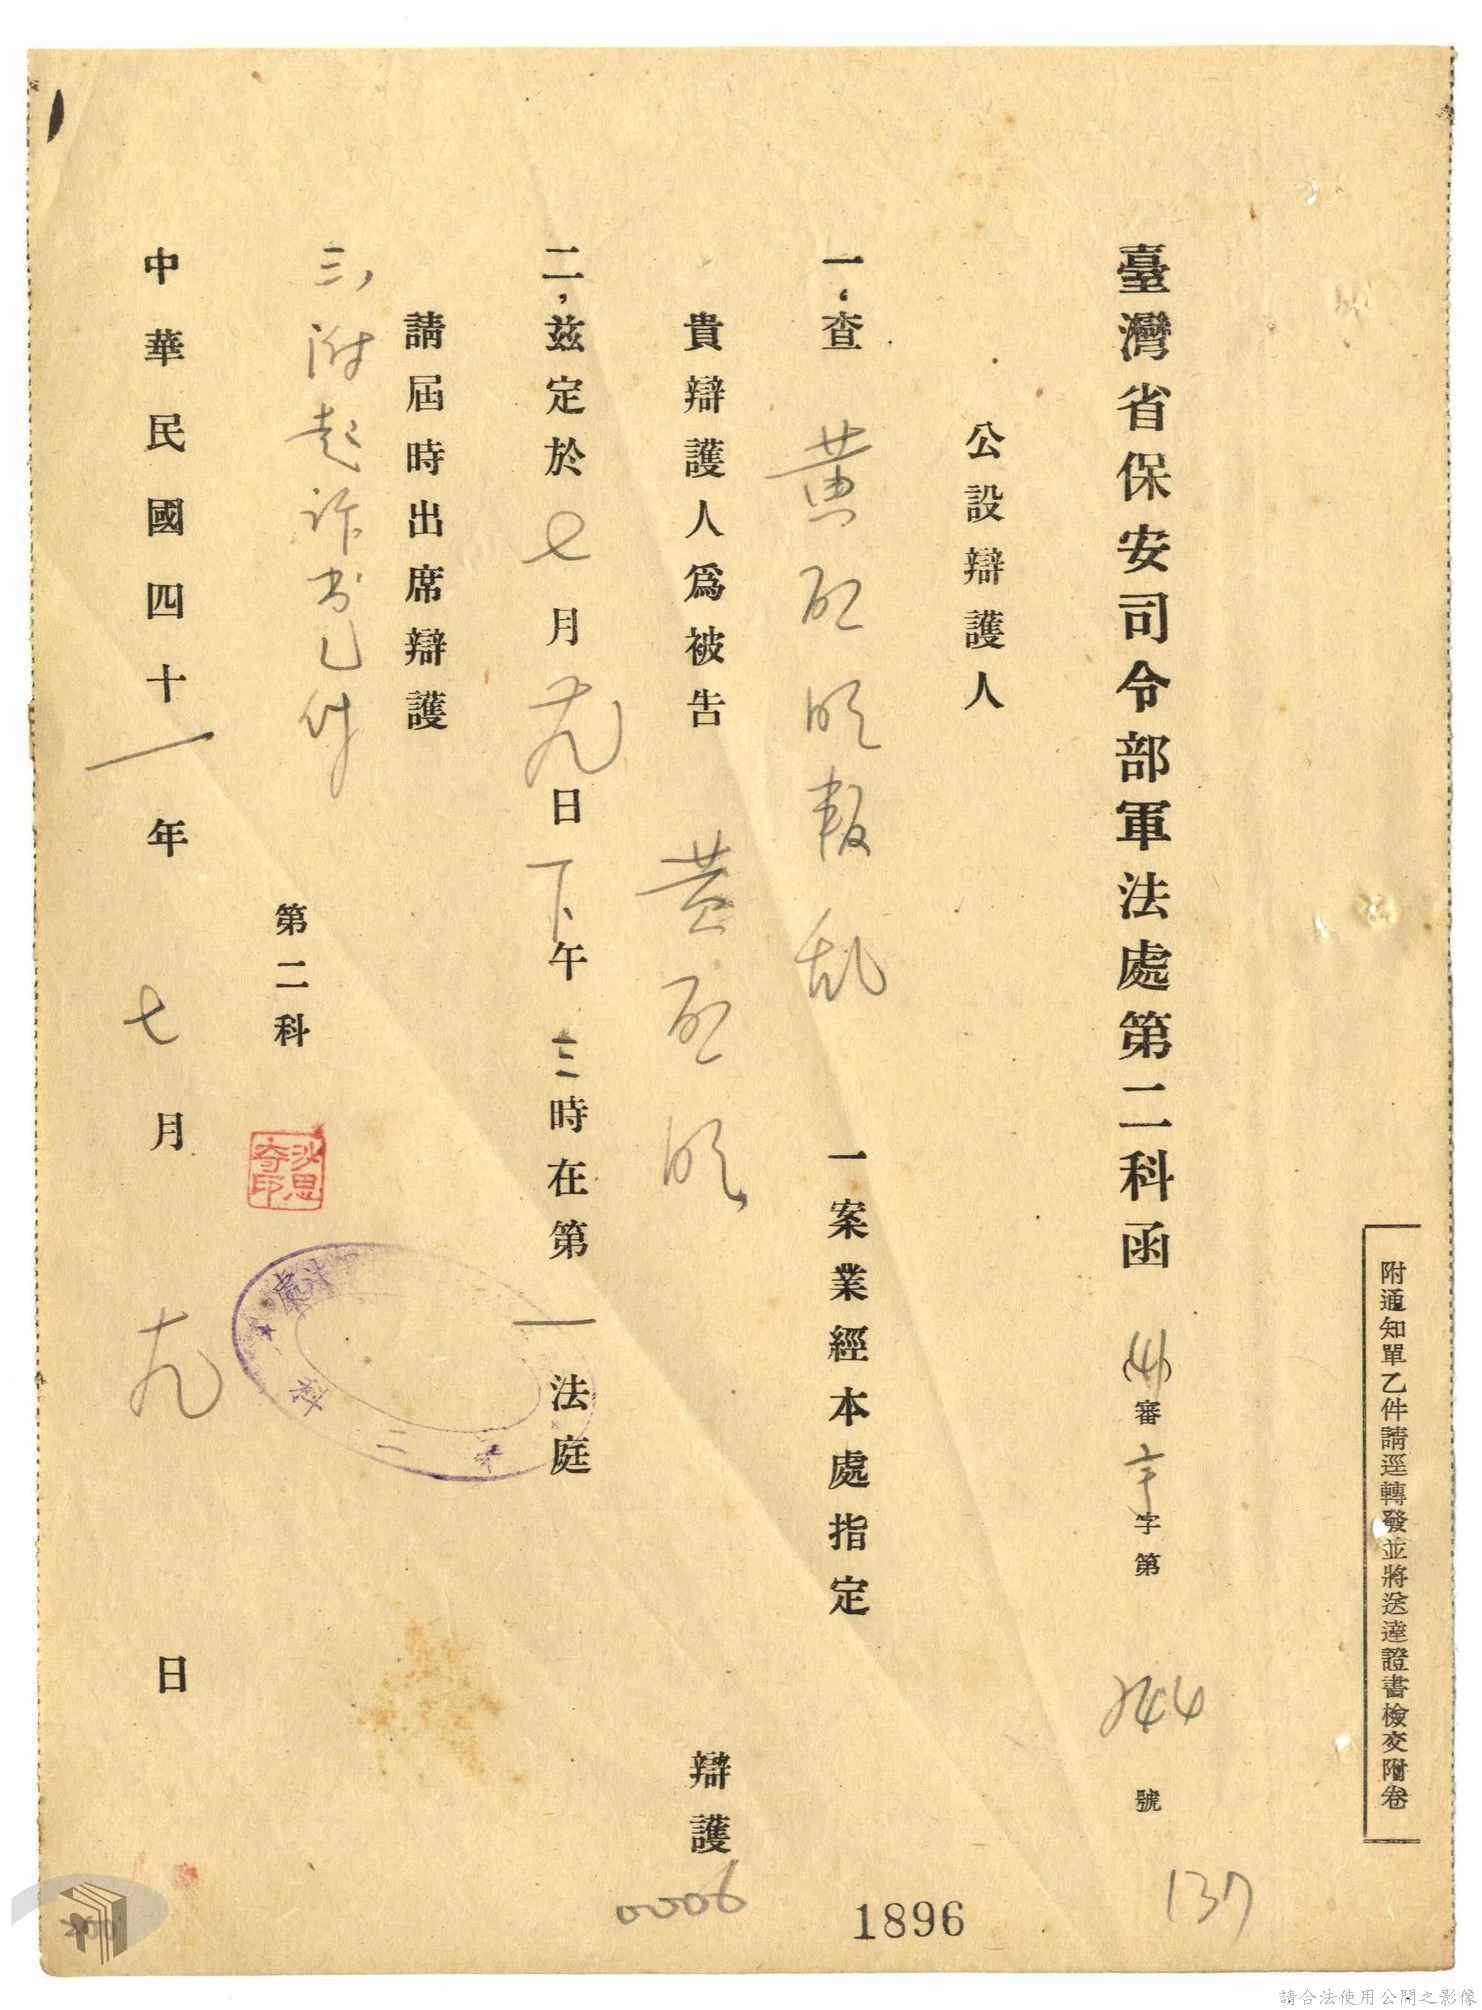 附通知單乙件請逕轉發並將送達證書檢交附卷
臺灣省保安司令部軍法處第二科函 (41)審字第744號
公設辯護人
一、查 叛乱 一案業經本處指定
貴辯護人為被告 辯護
二,茲定於七月十九日下午三時在第一法庭
請屆時出席辯護
三,附起訴书乙件
第二科
中華民國四十一年七月十九日
處
科二第
137
1896
0006
請合法使用公開之影像